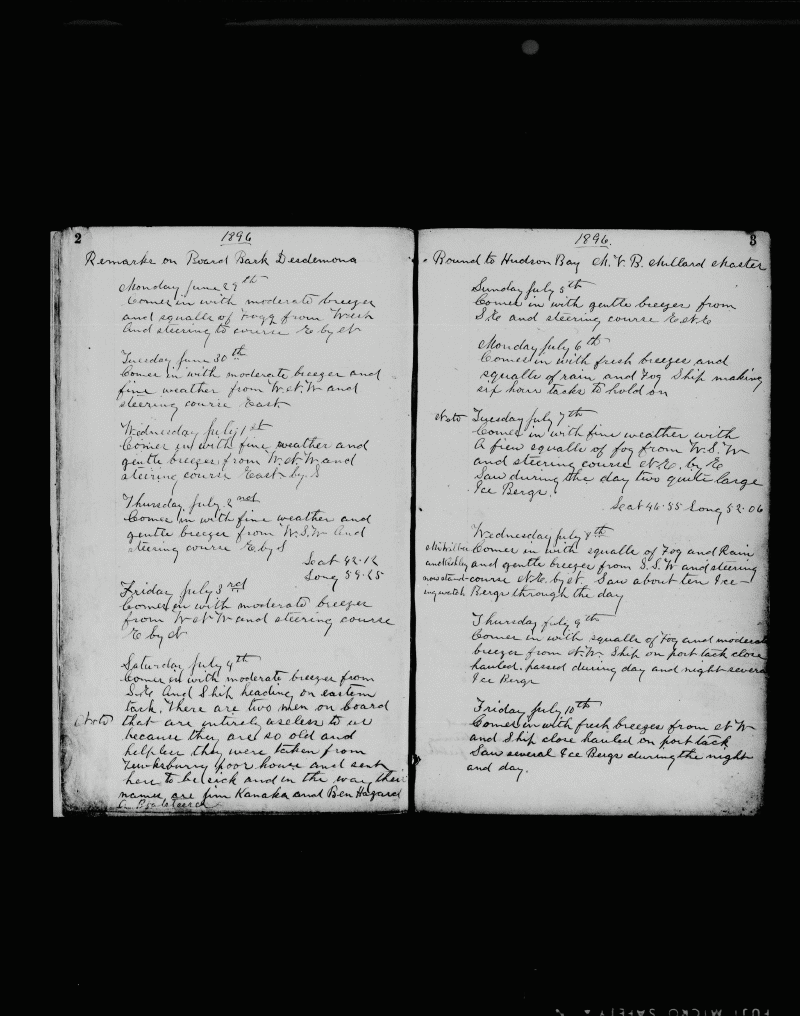 2
1896
Remarks on Board Bark Desdemona
Monday June 29th
Comes in with moderate breezes
and squalls of Fogg from West
And steering to course E by N
Tuesday June 30th
Comes in with moderate breezes and
fine weather from W.N.W and
steering course East
Wednesday July 1st
Comes in with fine weather and
gentle breezes from W.N.W. and
steering course East by S
Thursday July 2nd
Comes in with fine weather and
gentle breezes from W.S.W and
steering course E. by S
Leat 42.12
Long 59.25
Friday July 3rd
Comes in with moderate breezes
from W N W and steering course
E by N
Saturday July 4th
Comes in with moderate breezes from
S.E And Ship heading on eastern
tack. There are two men on board
(Note) that are entirely useless to us
because they are so old and
helpless they were taken from
Tewksburry poor house and sent
here to be sick and in the way their
names are Jim Kanaka and Ben Hazard
a
3
1896.
Bound to Hudson Bay M. V. B. Millard Master
Sunday July 5th
Comes in with gentle breezes from
S.E and steering course E.N.E
Monday July 6th
Comes in with fresh breezes and
squalls of rain and Fog Ship making
six hour tacks to hold on
Note Tuesday July 7th
Comes in with fine weather with
A few squalls of fog from W.S.W
and steering course N.E. by E
Saw during the day two quite large
Ice Bergs.
Leat 46.55 Long 52.06
Wednesday July 8th
Comes in with squalls of Fog and Rain
and gentle breezes from S.S.W and steering
now stand- course N.E. by N. Saw about ten Ice-
ing watch Bergs through the day
Thursday July 9th
Comes in with squalls of Fog and moderate
breezes from N.W. Ship on port tack close
hauled. passed during day and night several
Ice Bergs
Friday July 10th
Comes in with fresh breezes from N W
and Ship close hauled on port tack
Saw several Ice Bergs during the night
and day.
FUJI MICRO SAFETY